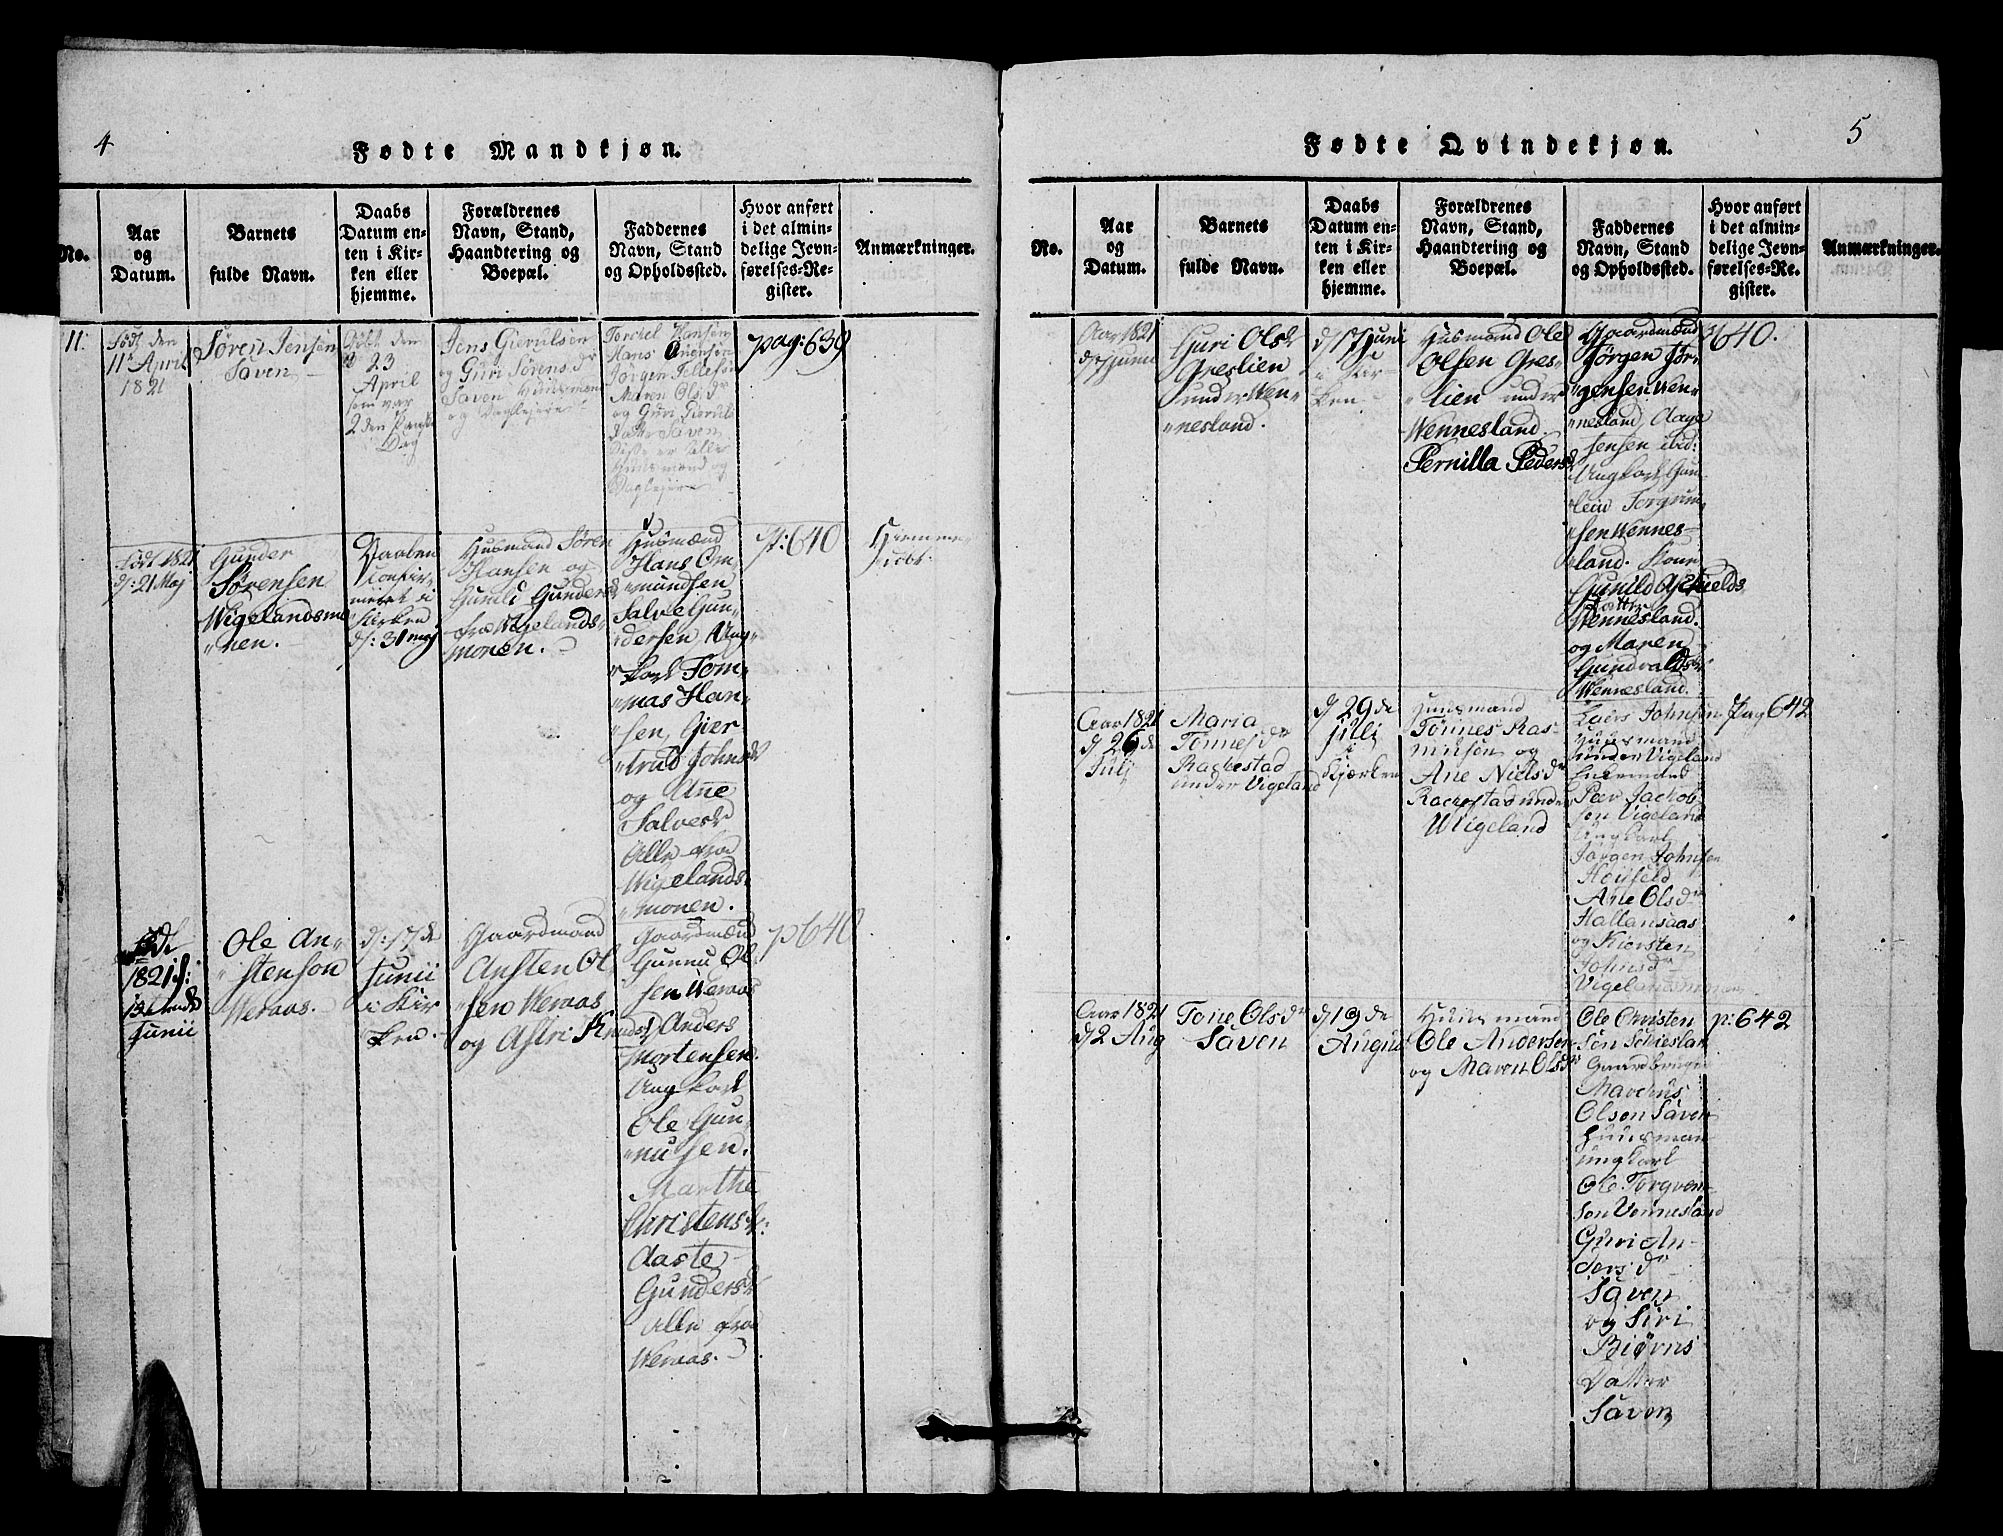 4
Fødte Mandkjøn.
No.
Aar
og
Datum.
Barnets
fulde Navn.
Daabs
Datum en-
ten i Kir-
ken eller
hjemme.
Forældrenes
Navn, Stand,
Haandtering og
Boepæl.
Faddernes
Navn, Stand
og Opholdssted.
Hvor anført
i det almin-
delige Jevn-
førelses-Re-
gister.
Anmærkninger.
11.
Født den
11te April
1821
Søren Jensen
Saven
Døbt den
23
April
som var
2den Paaske
Dag
Jens Gierulsen
og Guri Sørens dr
Saven Huusmand
og Daglejere
Torckel Hansen
Hans
Jørgen Tellefsen
Maren Ols dr
og Guri Gieruls
Datter Saven
Disse er Alle
Huusmænd og
Daglejere
pag: 639
Født 1821
d: 21 Maj
Gunder
Sørensen
Wigelandsmo
nen.
Daaben
Confir-
meret i
Kirken
d: 31 maj
Husmand Søren
Hansen og
Gunild Gundersd
fra Wigelands-
monen.
Husmænd
Hans Om-
mundsen
Salve Gun-
dersen Ung-
karl Tom-
mas Han-
sen, Gier
trud Johnsd
og Ane
Salvesd
Alle fra
Wigelands-
monen.
p: 640
Hiemme-
døbt.
1821 d:
Junii
Ole An-
stenson
Weraas.
d: 17de
Junii
i Kir
ken.
Gaardmand
Ansten Ol
sen Weraas
og Astri Knudsd
Gaardmænd
Gunnu Ol
sen Weraas
Anders
Mortensen.
Ungkarl
Ole Gun-
nusen.
Marthe
Christensd:
Aaste
Gundersd
Alle fra
Weraas.
p 640
5
Fødte Qvindekjøn.
No.
Aar
og
Datum.
Barnets
fulde Navn.
Daabs
Datum en-
ten i Kir-
ken eller
hjemme.
Forældrenes
Navn, Stand,
Haandtering og
Boepæl.
Faddernes
Navn, Stand
og Opholdssted.
Hvor anført
i det almin-
delige Jevn-
førelses-Re-
gister.
Anmærkninger.
Aar 1821
d 7 Junii
Guri Olsd
Greslien
under Wen-
nesland.
d 17 Juni
i Kir-
ken
Husmand Ole
Olsen Gres-
lien under
Wennesland.
Pernilla Pedersd
Gaardmænd
Jørgen Jør-
gensen Wen-
nesland, Aage
Jensen ibid:
Ungkarl Gun-
leiu Torgrim-
sen Wennes-
land. Kone
Gunild Aschields
Datter
Wennesland.
og Maren
Gundvaldsd
Wennesland.
640.
Aar 1821
d 26 de
Julj
Maria
Tønnesdr
Rackestad
under Vigeland
d 29 de
Julj
i
Kjærken
Huusmand
Tønnes Ras-
musen og
Ane Nielsdr
Rackestad under
Wigeland
Laers Johnsen
Huusmand
under Vigeland
Peer Jackob-
sen Vigeland
Ungkarl
Jørgen Johnsen
Houfeld
Ane Olsdr
Hallansaas
og Kiersten
Johnsdr
Vigelandsmonen
Pag 642
Aar 1821
d 2 Aug
Tone Olsdr
Saven
d 19 de
August
Huusmand
Ole Andersen
og Maren Olsdr
Ole Christen
sen
Gaardbruger
Marchus
Olsen Saven
Huusman
ungkarl
Ole Torgvem-
sen Vennesland
Guri An-
dersdr
Saven
og Siri
Biørns
Datter
Saven
p: 642